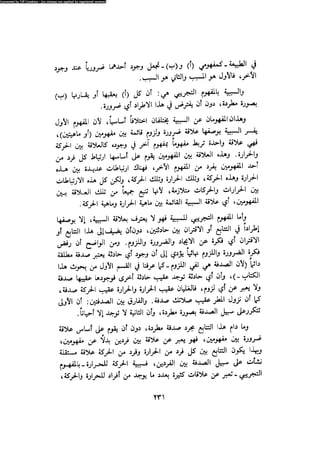 Converted by Tiff Combine - (no stamps are applied by registered version)
في الطبيعة - كمفهومي (أ) و (ب) - تجعل وجود أحدهما ضرورياً عند وجود
الآخر، فالأول هو السبب والثاني هو المسبب.
والسببية بالمفهوم التجريبي هي: أن كل (أ) يعقبها أو يقارنها (ب)
بصورة مطردة، دون أن يفترض في هذا الاطراد أي ضرورة.
وهذان المفهومان عن السببية مختلفان اختلافاً أساسياً، لأن المفهوم الأول
يفسر السببية بوصفها علاقة ضرورة ولزوم قائمة بين مفهومين (أو ماهيتين)،
فهي علاقة واحدة تربط مفهوماً بمفهوم آخر في وجوده كالعلاقة بين الحركة
والحرارة. وهذه العلاقة بين المفهومين تقوم على أساسها ارتباطات كل فرد من
أحد المفهومين بفرد من المفهوم الآخر، فهناك ارتباطات بعدد الأفراد بين هذه
الحركة وهذه الحرارة، وتلك الحركة وتلك الحرارة، ولكن كل هذه الارتباطات
والاقترانات بين الحركات والحرارات متلازمة، لأنها تنتج جميعاً عن تلك العلاقة بين
المفهومين، أي علاقة السببية القائمة بين ماهية الحرارة وماهية الحركة.
وأما المفهوم التجريبي للسببية فهو لا يعترف بعلاقة السببية، إلا بوصفها
اطراداً في التتابع أو الاقتران بين حادثتين، دون أن يضيف إلى هذا التتابع أو
الاقتران أي فكرة عن الإيجاد والضرورة واللزوم. ومن الواضح أن رفض
فكرة الضرورة واللزوم نهائياً يؤدي إلى أن وجود أي حادثة يعتبر صدفة مطلقة
دائماً (لأن الصدفة هي نفي اللزوم - كما عرفنا في القسم الأول من بحوث هذا
الكتاب -)، وأن أي حادثة توجد عقيب حادثة أخرى فوجودها عقيبها صدفة،
ولا يعبر عن أي لزوم، فالغليان عقيب الحرارة والحرارة عقيب الحركة صدفة،
كما أن نزول المطر عقيب صلاتك صدفة. والفارق بين الصدفتين: أن الأولى
تتكرر على سبيل الصدفة بصورة مطردة، وأن الثانية لا توجد إلا أحياناً.
وما دام هذا التتابع مجرد صدفة مطردة، دون أن يقوم على أساس علاقة
ضرورة بين المفهومين، فهو لا يعبر عن علاقة بين فردين بدلاً عن مفهومين،
وبهذا يكون التتابع بين كل فرد من الحرارة وفرد من الحركة علاقة مستقلة
نشأت على سبيل الصدفة بين الفردين، فسببية الحركة للحرارة - بالمفهوم
التجريبي - تعبر عن علاقات كثيرة بعدد ما يوجد من أفراد للحرارة والحركة،
٢٣١